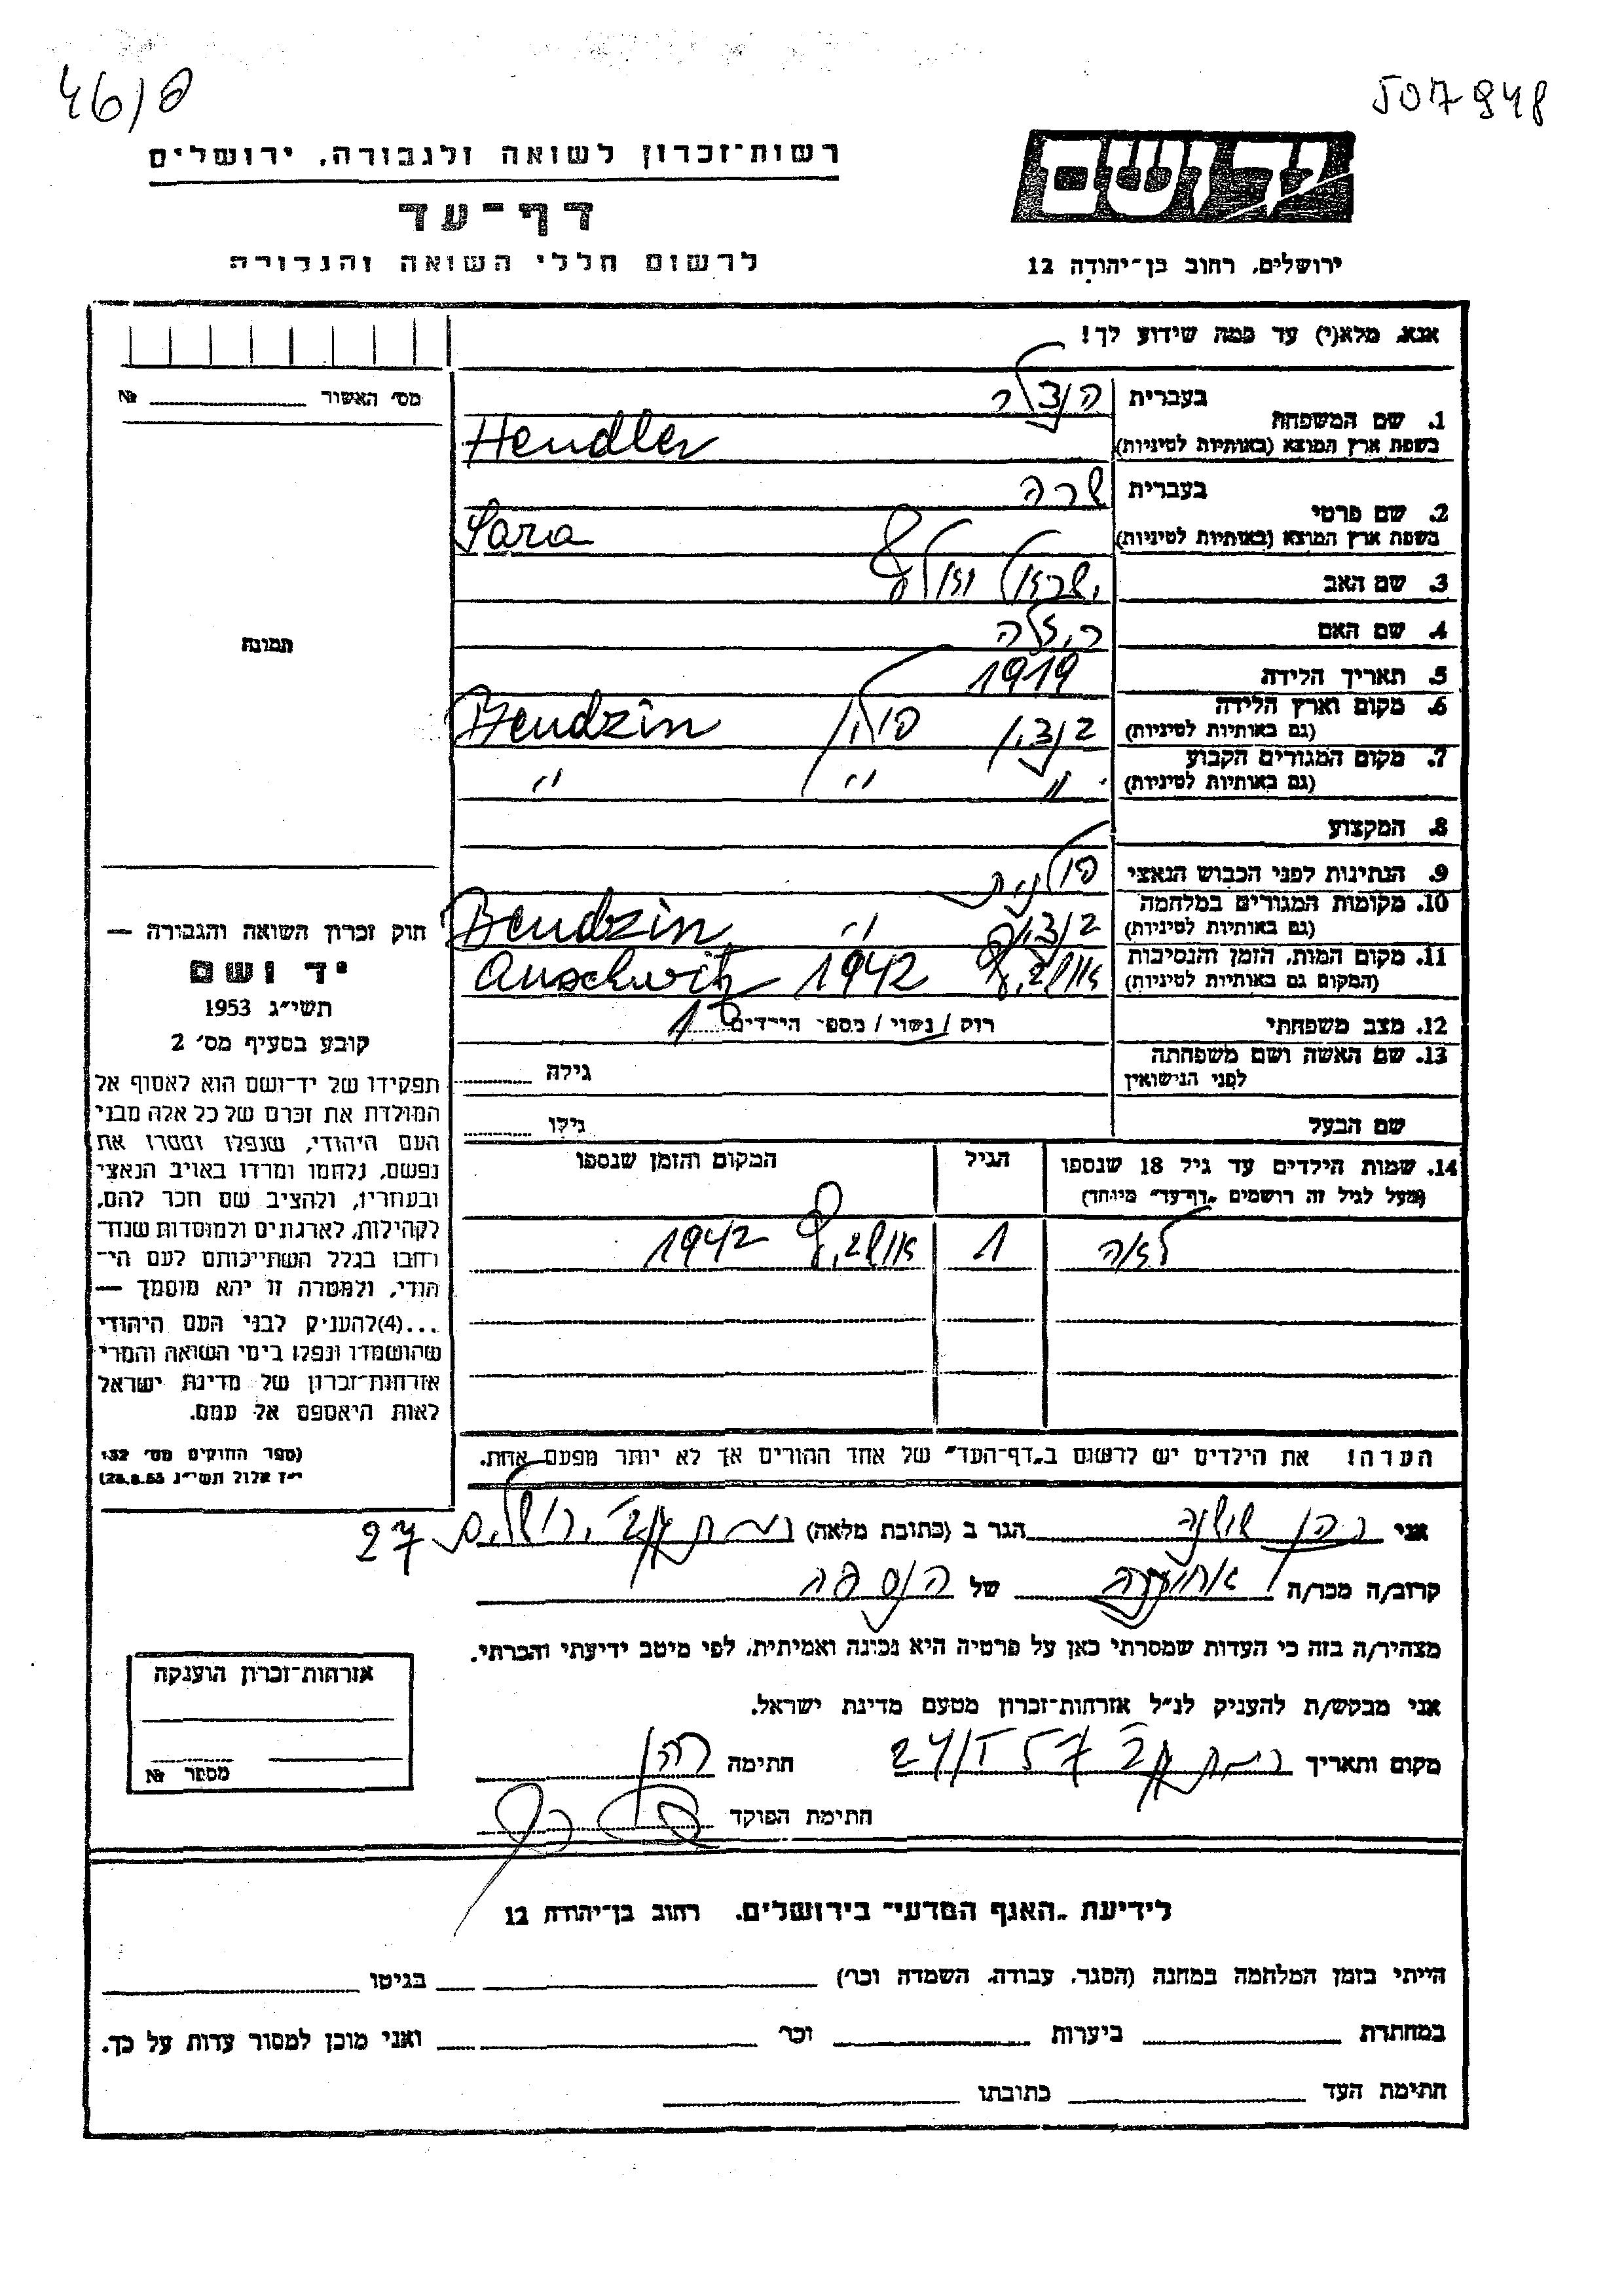 46/8
507948
רשות־זכרון לשואה ולגבורה, ירושלים
יד ושם
דף־עד
לרשום חללי השואה והגבורה
ירושלים, רחוב בן־יהודה 12
אנא, מלא(י) עד כמה שידוע לך!
מס׳ האשור № 
1. שם המשפחה בעברית הנדלר
בשפת ארץ המוצא (באותיות לטיניות) Hendler
2. שם פרטי בעברית שרה
בשפת ארץ המוצא (באותיות לטיניות) Sara
3. שם האב ישראל וואלף
4. שם האם
תמונה
5. תאריך הלידה 1919
6. מקום וארץ הלידה (גם באותיות לטיניות) בנדצין פולין Bendzin
7. מקום המגורים הקבוע (גם באותיות לטיניות) " " "
8. המקצוע
9. הנתינות לפני הכבוש הנאצי פולנית
10. מקומות המגורים במלחמה (גם באותיות לטיניות) בנדצין " Bendzin
11. מקום המות, הזמן והנסיבות (המקום גם באותיות לטיניות) אושביץ 1942 Auschwitz
12. מצב משפחתי רווק / נשוי / מספר הילדים 1
13. שם האשה ושם משפחתה לפני הנישואין גילה
שם הבעל גילו
14. שמות הילדים עד גיל 18 שנספו הגיל המקום והזמן שנספו
(מעל לגיל זה רושמים „דף־עד” מיוחד)
לאה 1 אושביץ 1942
הערה! את הילדים יש לרשום ב„דף־העד” של אחד ההורים אך לא יותר מפעם אחת.
חוק זכרון השואה והגבורה —
יד ושם
תשי״ג 1953
קובע בסעיף מס׳ 2
תפקידו של יד־ושם הוא לאסוף אל
המולדת את זכרם של כל אלה מבני
העם היהודי, שנפלו ומסרו את
נפשם, נלחמו ומרדו באויב הנאצי
ובעוזריו, ולהציב שם וזכר להם,
לקהילות, לארגונים ולמוסדות שנח־
רבו בגלל השתייכותם לעם הי־
הודי, ולמטרה זו יהא מוסמך —
...(4) להעניק לבני העם היהודי
שהושמדו ונפלו בימי השואה והמרי
אזרחות־זכרון של מדינת ישראל
לאות היאספם אל עמם.
(ספר החוקים מס׳ 132
י״ז אלול תשי״ג 28.8.53)
אני כהן שושנה הגר ב (כתובת מלאה) רמת גן ירושלים 27
קרוב/ה מכר/ה של הנספה
מצהיר/ה בזה כי העדות שמסרתי כאן על פרטיה היא נכונה ואמיתית, לפי מיטב ידיעתי והכרתי.
אני מבקש/ת להעניק לנ״ל אזרחות־זכרון מטעם מדינת ישראל.
מקום ותאריך רמת גן 24/I 57 חתימה כהן
חתימת הפוקד
אזרחות־זכרון הוענקה
מספר №
לידיעת „האגף המדעי” בירושלים, רחוב בן־יהודה 12
הייתי בזמן המלחמה במחנה (הסגר, עבודה, השמדה וכו׳) בגיטו
במחתרת ביערות וכו׳ ואני מוכן למסור עדות על כך.
חתימת העד כתובתו